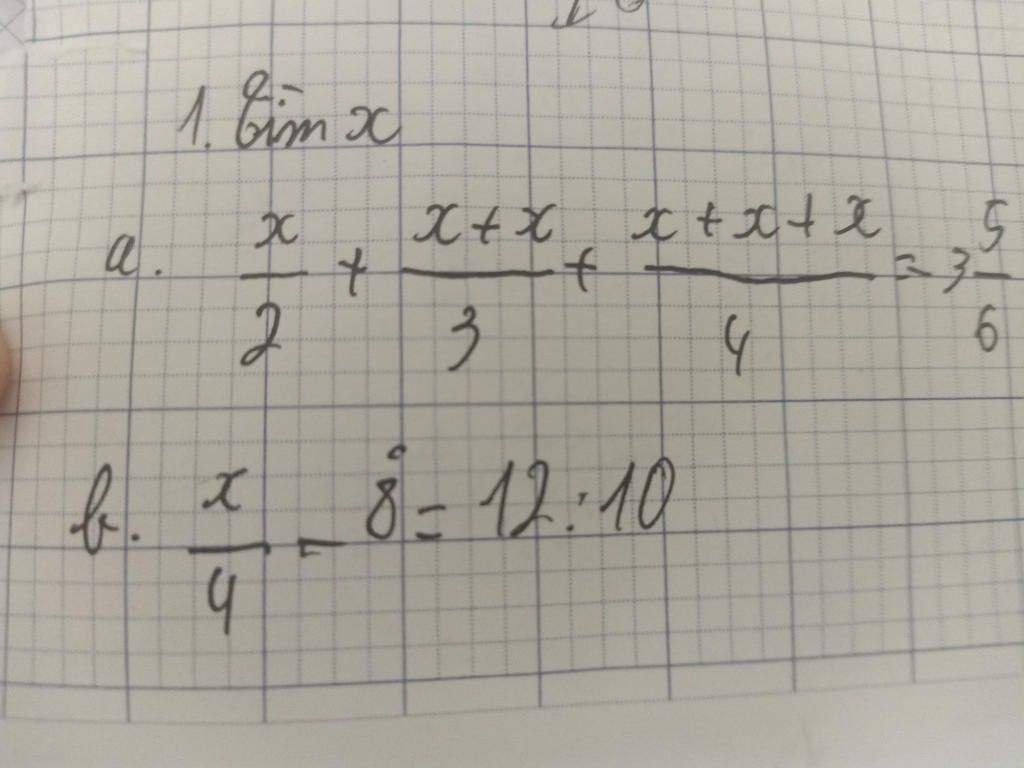 1. Tìm x
a. x/2 + x + x/3 + x + x + x/4 = 3 5/6
b. x/4 - 8 = 12 : 10